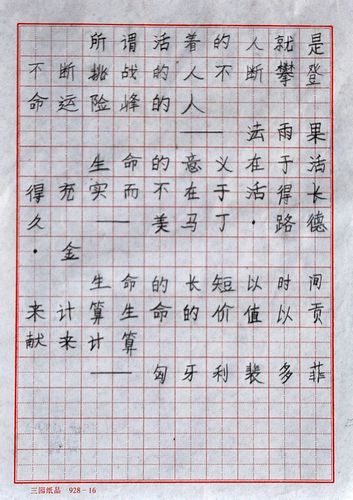 所谓活着的人就是
不断挑战的人不断攀登
命运险峰的人
——法雨果
生命的意义在于活
得充实而不在于活得长
久——美马丁·路德
·金
生命的长短以时间
来计算生命的价值以贡
献来计算
——匈牙利裴多菲
三园纸品 928-16